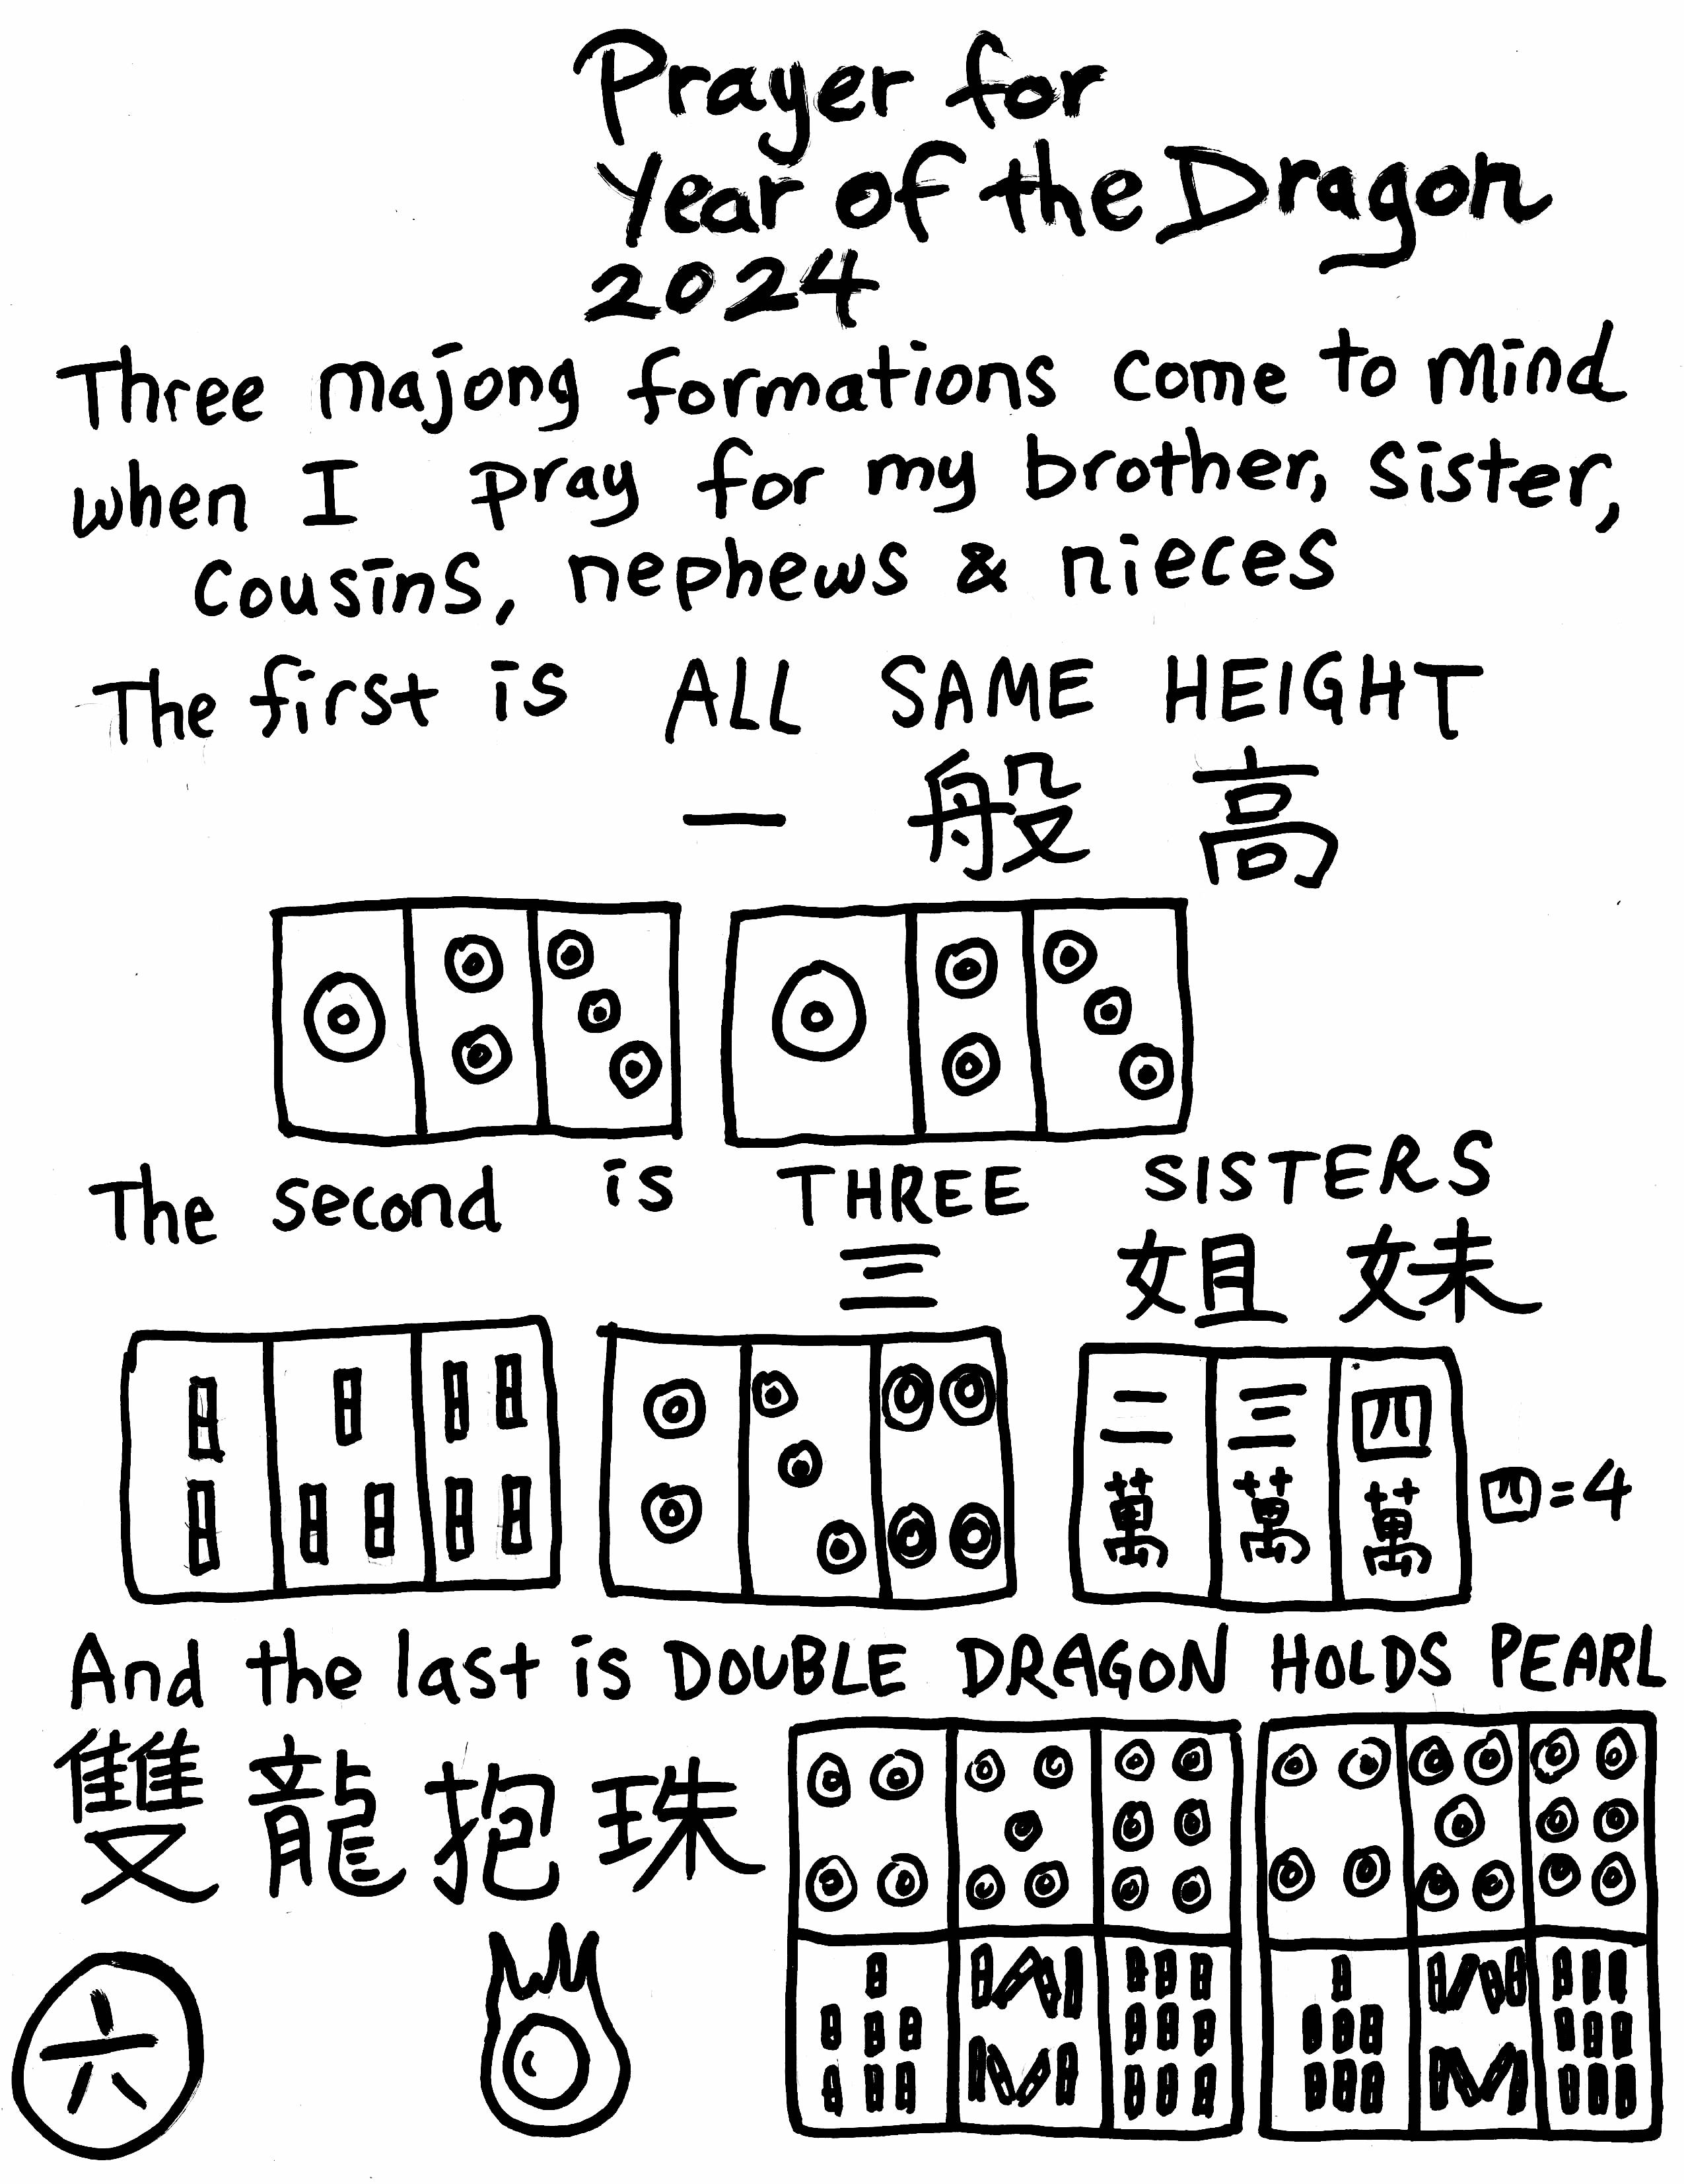 Prayer for
Year of the Dragon
2024
Three majong formations come to mind
when I pray for my brother, sister,
cousins, nephews & nieces
The first is ALL SAME HEIGHT
一 般 高
The second is THREE SISTERS
三 姐 妹
二 三 四
萬 萬 萬
四=4
And the last is DOUBLE DRAGON HOLDS PEARL
雙 龍 抱 珠
六